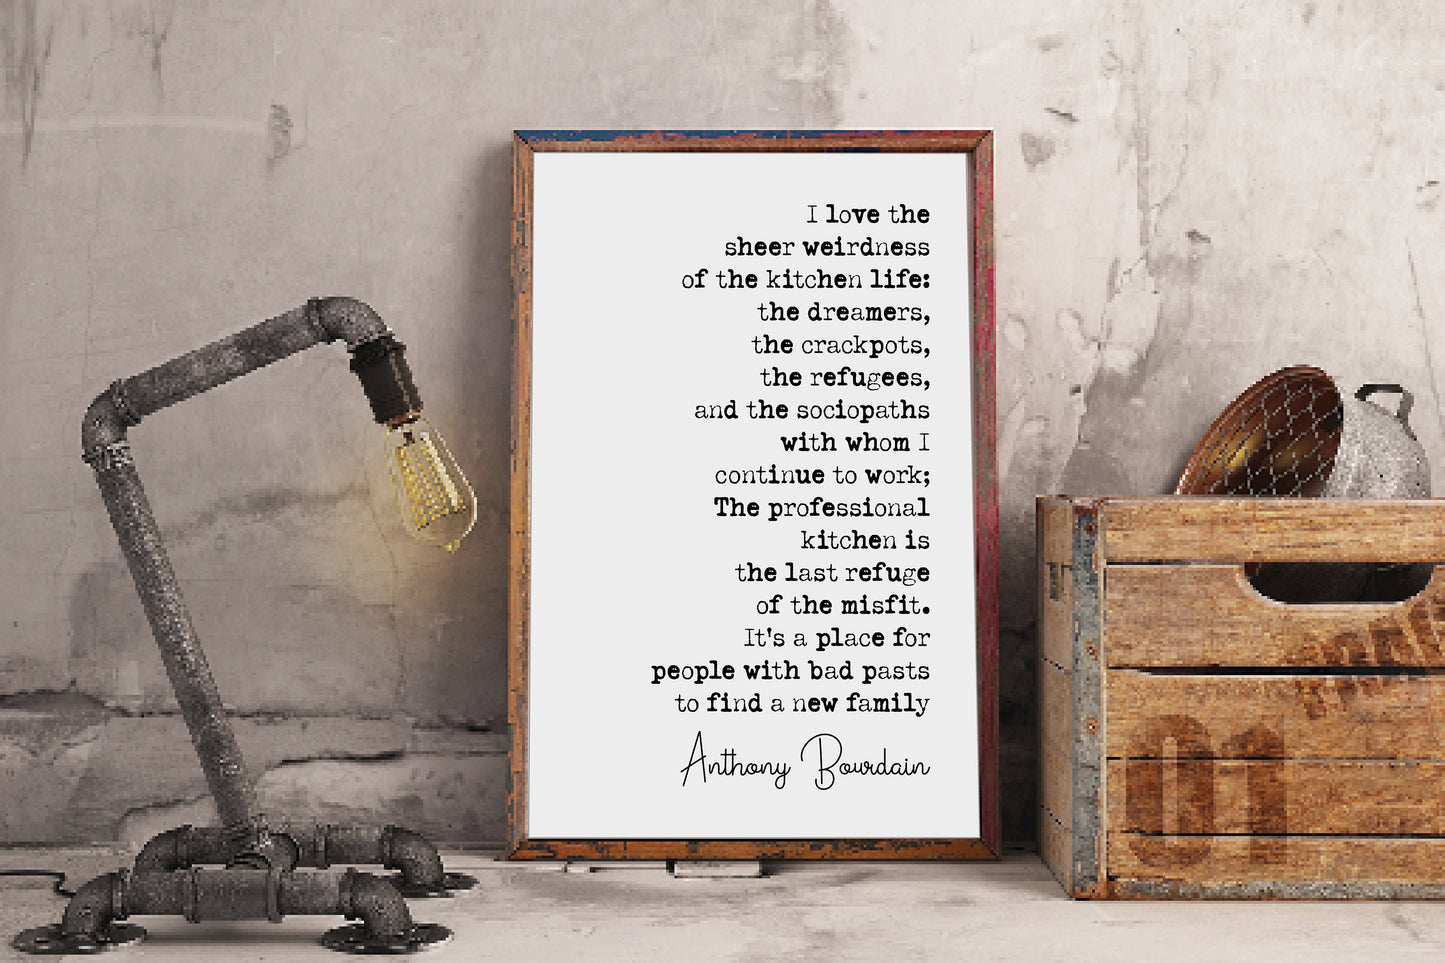 I love the
sheer weirdness
of the kitchen life:
the dreamers,
the crackpots,
the refugees,
and the sociopaths
with whom I
continue to work;
The professional
kitchen is
the last refuge
of the misfit.
It's a place for
people with bad pasts
to find a new family
Anthony Bourdain
01